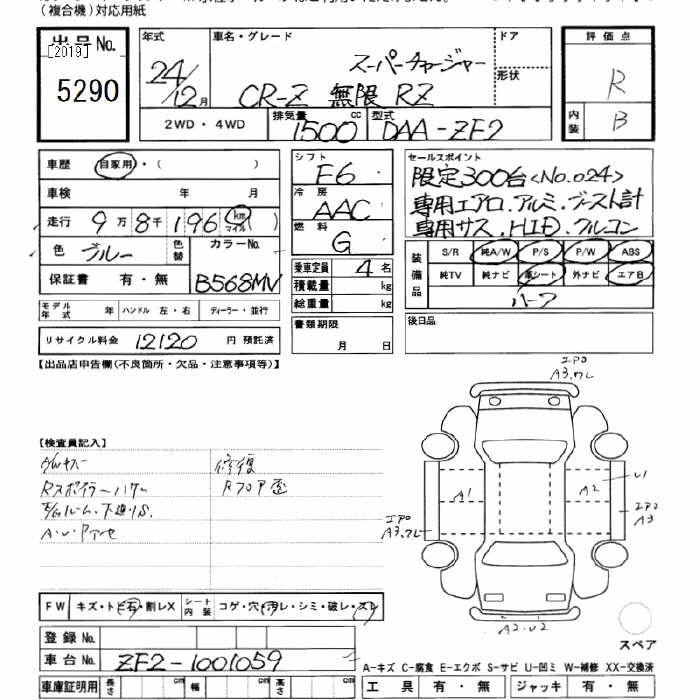 (複合機)対応用紙
出品No.
[2019]
5290
年式
24/12月
車名・グレード
スーパーチャージャー
CR-Z 無限 RZ
ドア
形状
評価点
R
内装
B
2WD・4WD
排気量
1500
cc
型式
DAA-ZF2
車歴
自家用・( )
車検 年 月
走行 9万8千196 km マイル ( )
色 ブルー
色替
カラーNo.
B568MV
保証書 有・無
モデル年式 年
ハンドル 左・右
ディーラー・並行
リサイクル料金 12120 円 預託済
シフト
F6
冷房
AAC
燃料
G
乗車定員 4名
積載量 kg
総重量 kg
書類期限
月 日
セールスポイント
限定300台<No.024>
専用エアロ.アルミ.ブースト計
専用サス.HID.フルコン
装備品
S/R 純A/W P/S P/W ABS
純TV 純ナビ 革シート 外ナビ エアB
ハーフ
後日品
【出品店申告欄(不良箇所・欠品・注意事項等)】
【検査員記入】
修復
Rスポイラー
下廻りS.
エPO
A3.ワレ
A1
A2
U1
エPO
A3
エPO
A3.ワレ
A2.U2
スペア
FW キズ・トビ石・割レX
シート内装 コゲ・穴・汚レ・シミ・破レ・スレ
登録No.
車台No. ZF2-1001059
車庫証明用 長さ cm 幅 cm 高さ cm
A-キズ C-腐食 E-エクボ S-サビ U-凹ミ W-補修 XX-交換済
工具 有・無 ジャッキ 有・無